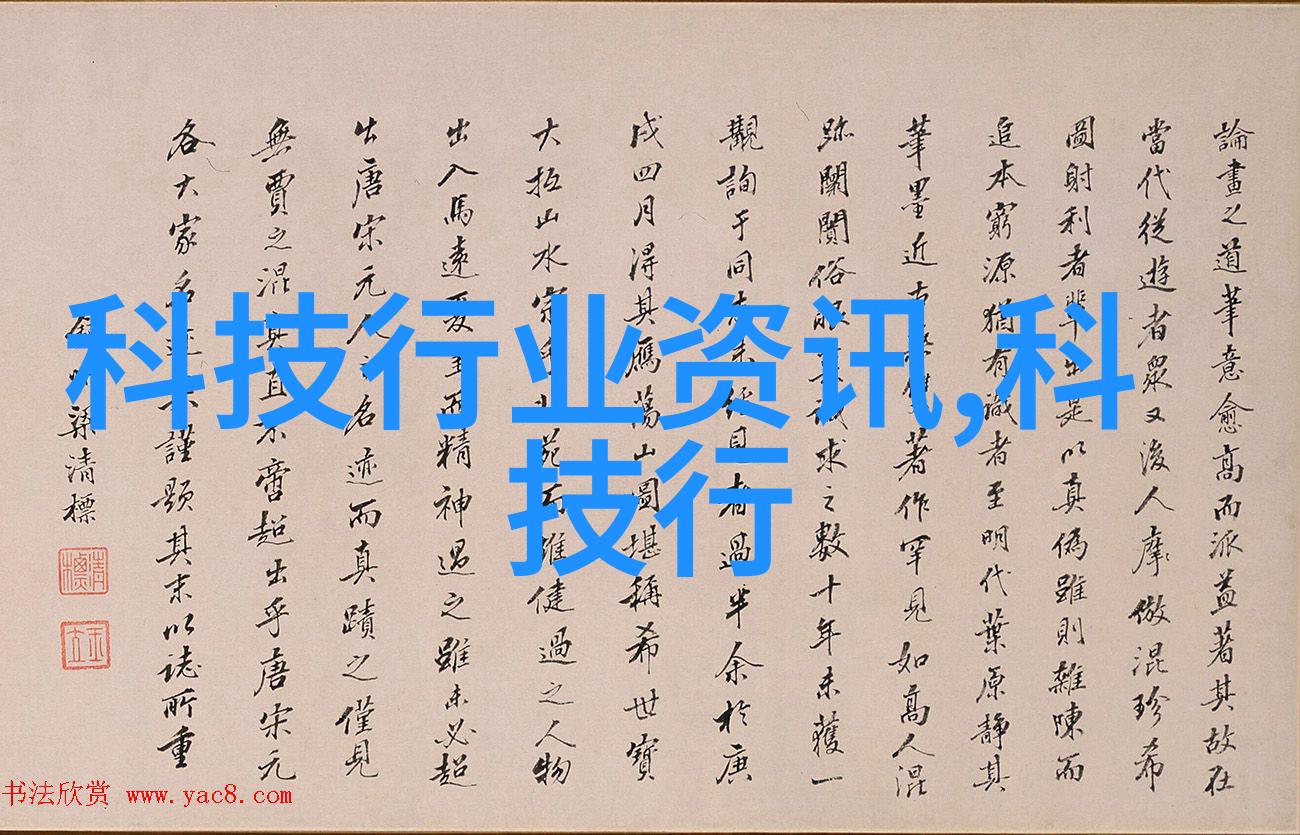 論畫之道筆意愈高而派益著其故在
當代從遊者衆又後人摩倣混珍希
圖射利者是以真偽雖則雜陳而
追本窮源猶有識者至明代葉原靜其
筆墨近古著作罕見如高人混
跡闤闠俗眼識求之數十年未獲一
觀詢于同者過半余於庚
戌四月淂其鴈蕩山圖堪稱希世寶
大抵山水宗雄健過之人物
出入馬遠夏圭而精神過之雖未必超
出唐宋元人之名迹而真蹟之僅見
無賈之混真直不啻超出乎唐宋元
各大家名迹謹題其末以誌所重
孫清標
清標
科技行业资讯,科
技行
书法欣赏 www.yac8.com